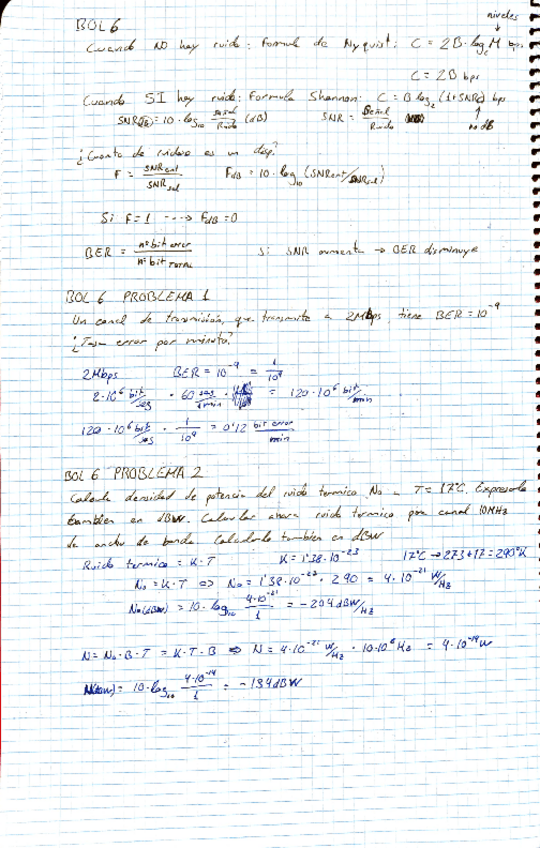 niveles
BOL 6
Cuando NO hay ruido: Formula de Nyquist: C = 2B·log₂ M bps
C = 2B bps
Cuando SI hay ruido: Formula Shannon: C = B log₂ (1+SNR) bps
SNR(dB) = 10·log₁₀ Señal/Ruido (dB) SNR = Señal/Ruido no dB
¿Cuanto de ruidoso es un disp?
F = SNRent/SNRsal FdB = 10·log₁₀ (SNRent/SNRsal)
Si F=1 ---> FdB=0
BER = nº bit error/nº bit TOTAL Si SNR aumenta → BER disminuye
BOL 6 PROBLEMA 1
Un canal de transmisión, que transmite a 2Mbps, tiene BER = 10⁻⁹
¿Tasa error por minuto?
2Mbps BER = 10⁻⁹ = 1/10⁹
2·10⁶ bit/seg · 60 seg/1min = 120·10⁶ bit/min
120·10⁶ bit/seg · 1/10⁹ = 0'12 bit error/min
BOL 6 PROBLEMA 2
Calcula densidad de potencia del ruido termico No a T = 17ºC. Expresarla
tambien en dBW. Calcular ahora ruido termico para canal 10MHz
de ancho de banda. Calculado tambien en dBW
Ruido termico = K·T K = 1'38·10⁻²³ 17ºC → 273+17 = 290ºK
No = K·T ⇒ No = 1'38·10⁻²³ · 290 = 4·10⁻²¹ W/Hz
No(dBW) = 10·log₁₀ 4·10⁻²¹/1 = -204 dBW/Hz
N = No·B·T = K·T·B ⇒ N = 4·10⁻²¹ W/Hz · 10·10⁶ Hz = 4·10⁻¹⁴ W
N(dBW) = 10·log₁₀ 4·10⁻¹⁴/1 = -134 dBW